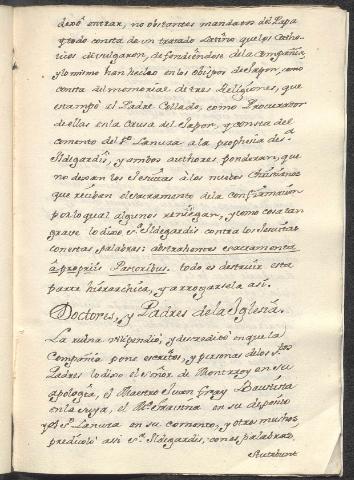 dexò entrar, no obstantes mandatos del Papa
y todo consta de un tratado Latino que los Catho-
licos divulgaron, defendiendose de la Compañia,
y lo mismo han hecho en los Obispos de Japon, como
consta del memorial de tres Religiones, que
estampò el Padre Collado, como Procurador
de ellas en la Causa del Japon, y consta del
comento del Pe. Lanuza a la prophecia de sta.
Ildegardis, y ambos authores ponderan, que
no dexan los Jesuitas a los nuebos Christianos
que reciban el sacramento de la confirmacion
por lo qual algunos reniegan, y como cosa tan
grave lo dixo sta. Ildegardis contra los Jesuitas
con estas palabras: abstrahentes sacramenta
a propriis Pastoribus. todo es destruir esta
parte hierarchica, y arrogarsela asi.
Doctores, y Padres de la Iglesia.
La ruina vilipendio, y descredito en que la
Compañia pone escritos, y personas de los Stos.
Padres lo dixo el señor de Montroy en su
apologia, el Maestro Juan fray Bautista
en la suya, el Mo. en su
y el Po. Lanuza en su comento, y otros muchos,
predixolo assi sta. Ildegardis, con es. palabras